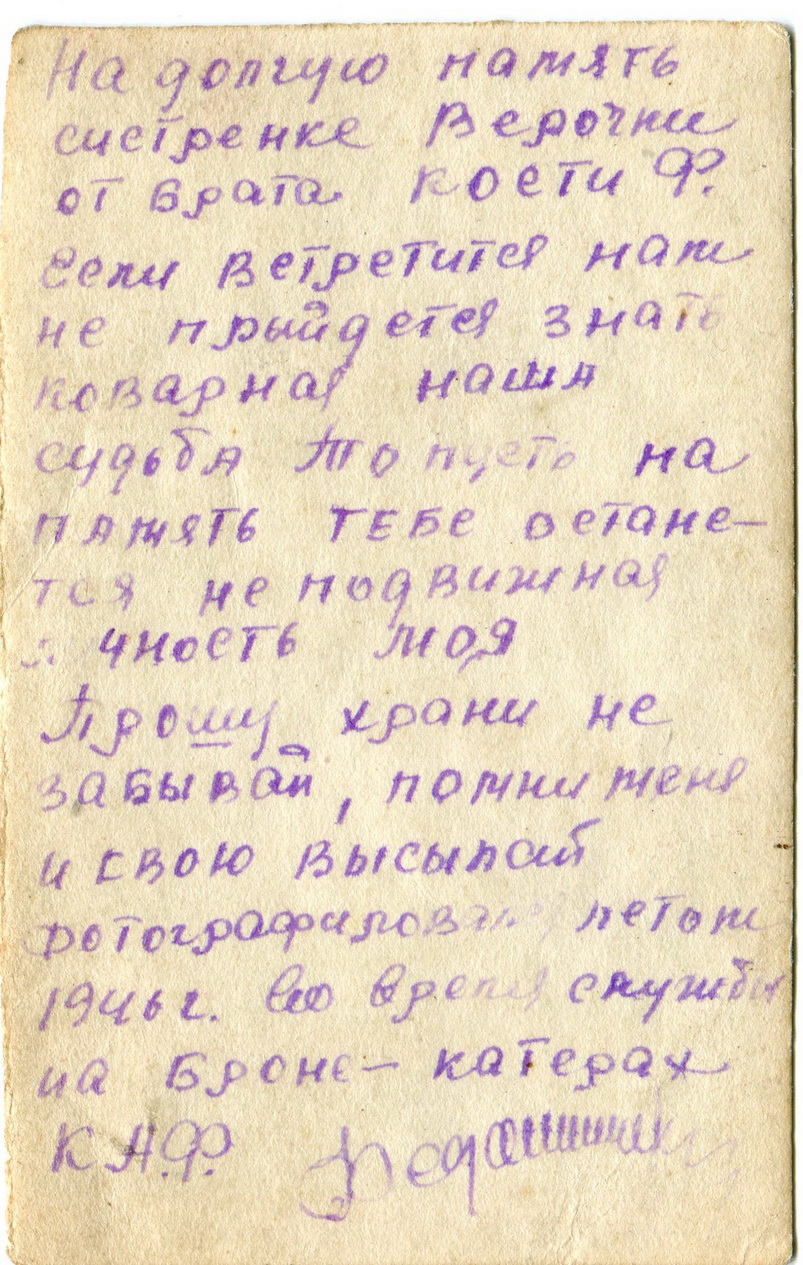 На долгую память
систренке Верочки
от брата Кости Ф.
Если встретится нам
не прыйдется знать
коварная наша
судьба То пусть на
память тебе остане-
тся не подвижная
личность моя
Прошу храни не
забывай, помни меня
и свою высылай
фотографировался летом
1946 г. во время службы
на Броне- катерах
К А.Ф.